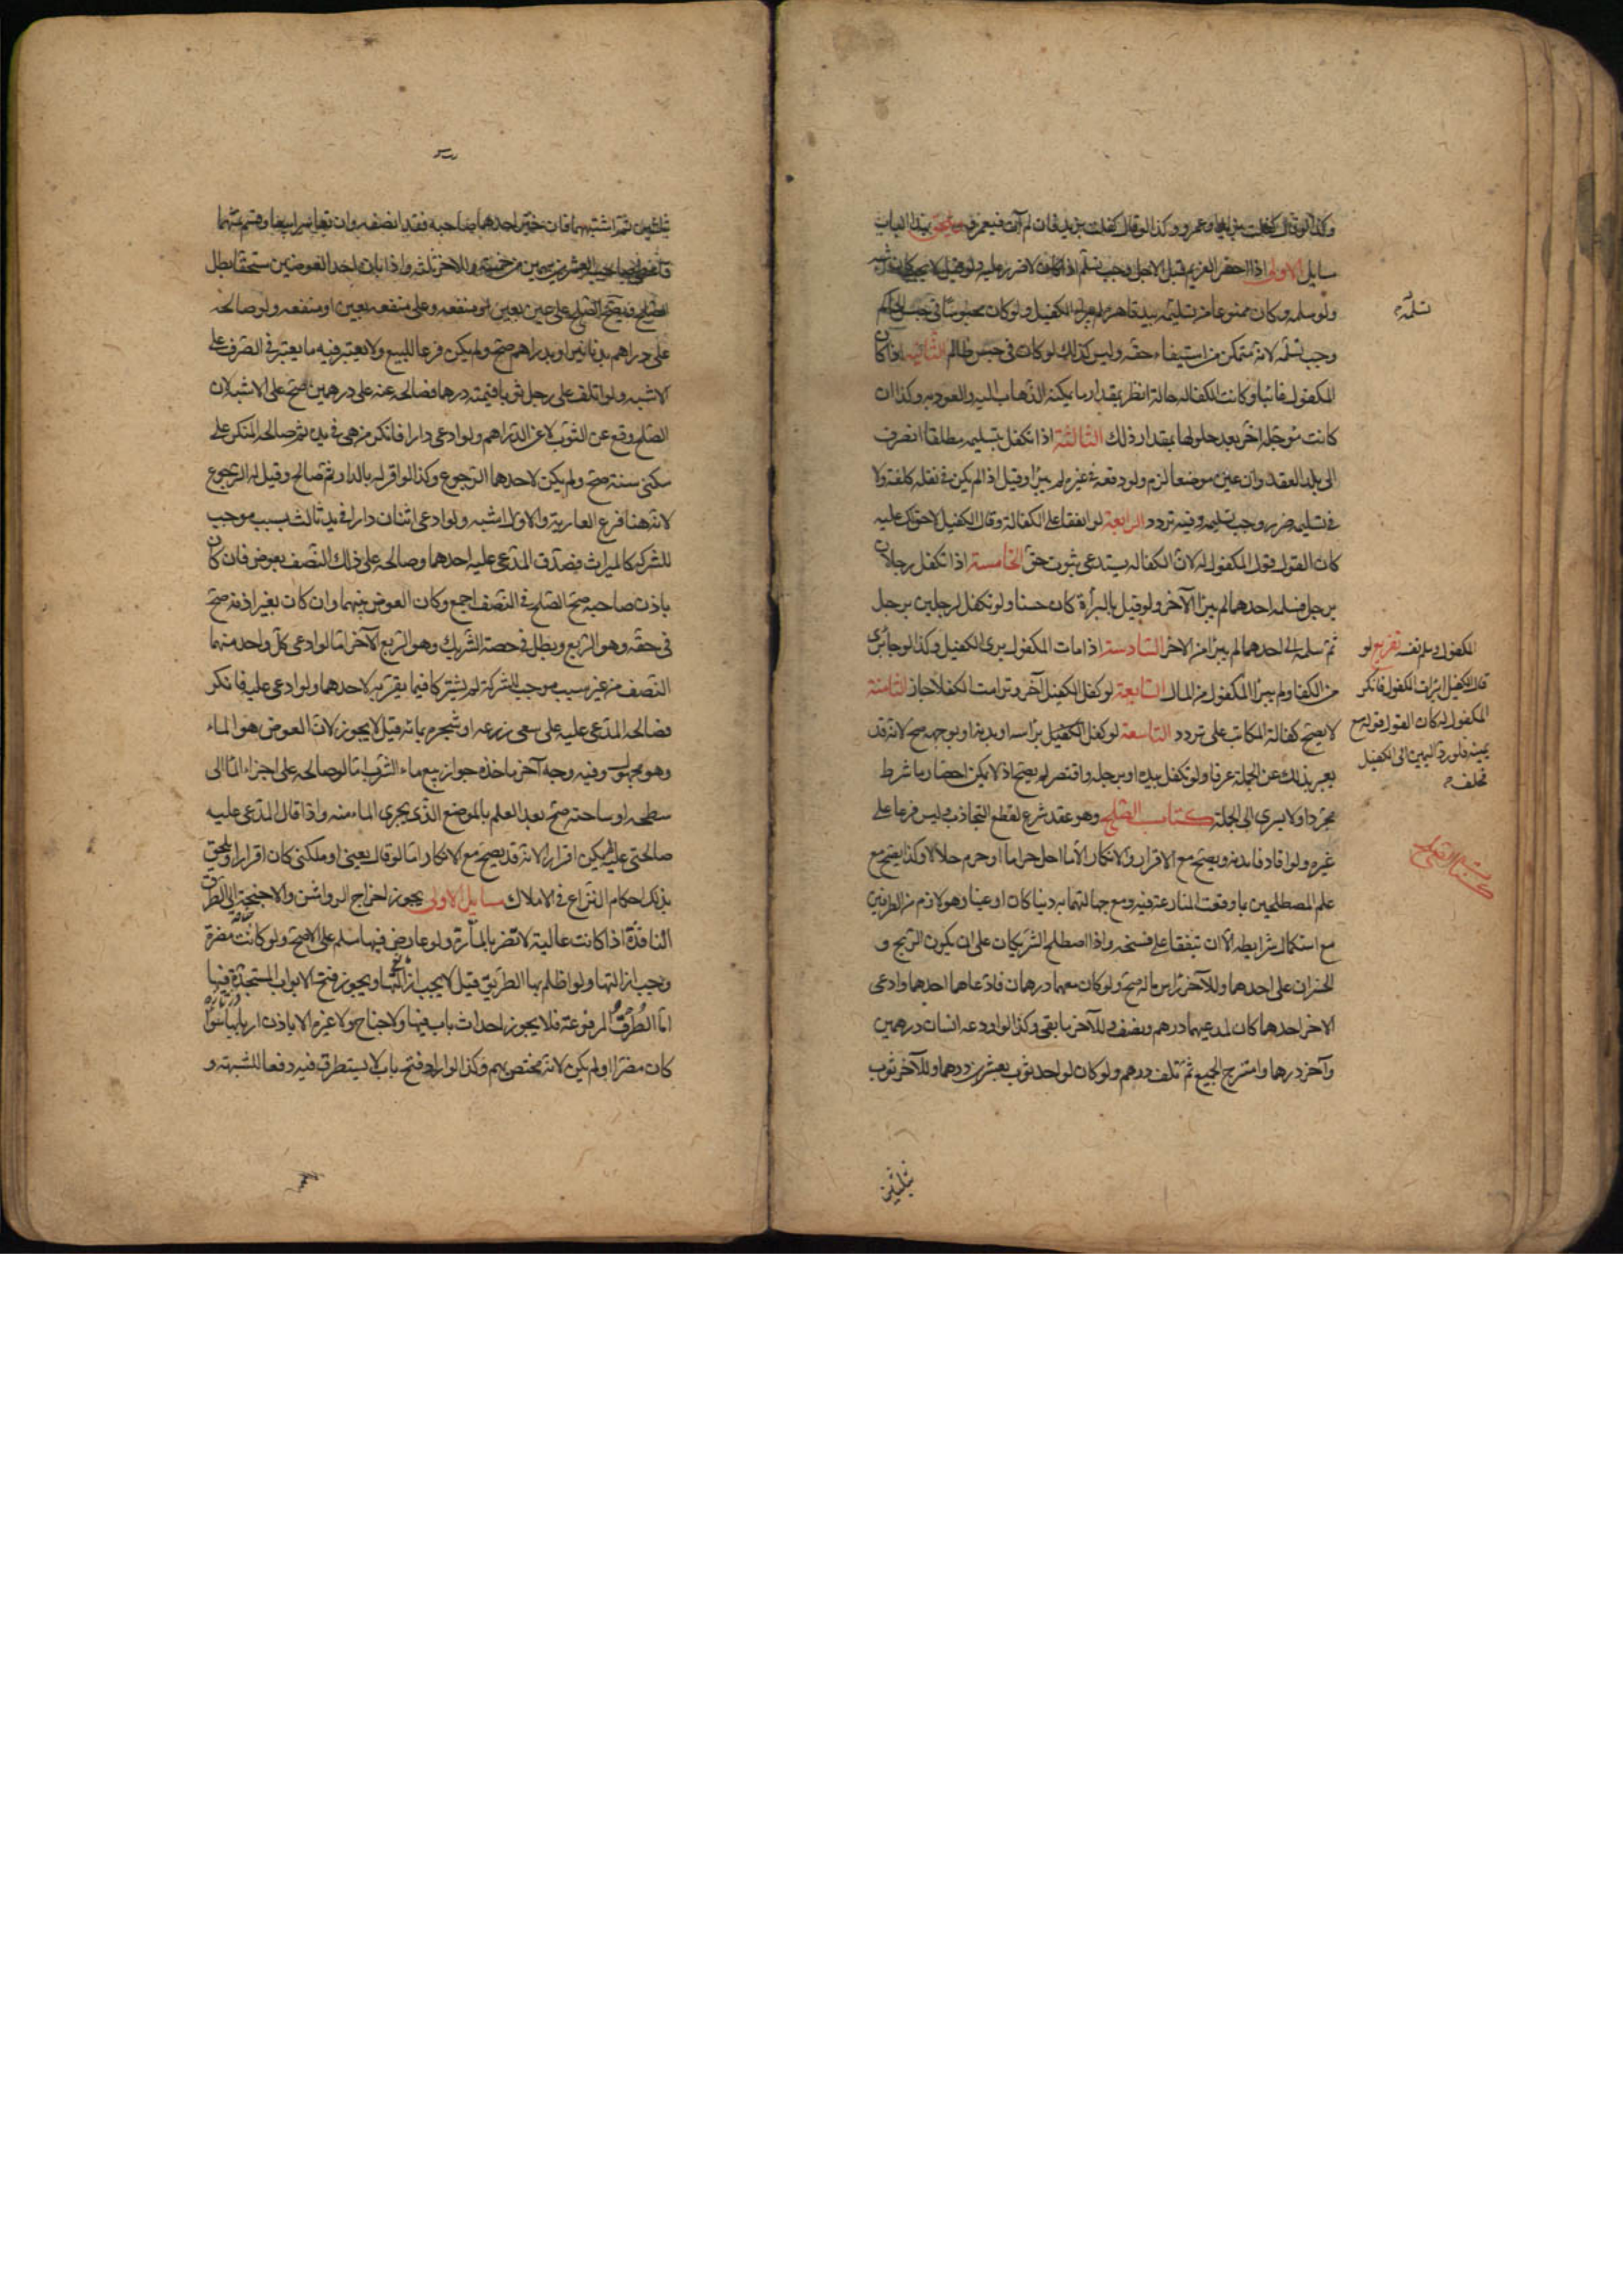 وكذا لو قال كفلت بزيد او عمرو وكذا لو قال كفلت بزيد فان لم آت فبعمرو ويلحق بهذا الباب
مسايل الاولى اذا احضر الغريم قبل الاجل وجب تسلمه اذا كان لا ضرر عليه ولو قيل لا يجب كان اشبه
ولو سلمه وكان ممنوعا من تسليمه بيد قاهرة لم يبرا الكفيل ولو كان محبوسا في حبس الحاكم
وجب تسلمه لانه متمكن من استيفاء حقه وليس كذلك لو كان في حبس ظالم الثانيه اذا كان
المكفول غائبا وكانت الكفاله حالة انظر بمقدار ما يمكنه الذهاب اليه والعود به وكذا ان
كانت موجله اخر بعد حلولها بمقدار ذلك الثالثة اذا تكفل بتسليمه مطلقا انصرف
الى بلد العقد وان عين موضعا لزم ولو دفعه في غيره لم يبرا وقيل اذا لم يكن في نقله كلفة ولا
في تسليمه ضرر وجب تسليمه وفيه تردد الرابعة لو اتفقا على الكفالة وقال الكفيل لا حق لك عليه
كان القول قول المكفول له لان الكفاله يستدعى ثبوت حق الخامسة اذا تكفل رجلان
برجل فسلمه احدهما لم يبرا الآخر ولو قيل بالبرأة كان حسنا ولو تكفل لرجلين برجل
ثم سلمه الى احدهما لم يبرا من الاخر السادسة اذا مات المكفول برى الكفيل وكذا لو جاء
من الكفا ولم يبرا المكفول من المال السابعة لو كفل الكفيل آخر وترامت الكفلا جاز الثامنة
لا يصح كفالة المكاتب على تردد التاسعة لو كفل الكفيل براسه او بدنه او بوجهه صح لانه قد
يعبر بذلك عن الجملة عرفا ولو تكفل بيده او برجله واقتصر لم يصح اذ لا يمكن احضار ما شرط
مجردا ولا يسرى الى الجملة كتاب الصلح وهو عقد شرع لقطع التجاذب وليس فرعا على
غيره ولو افاد فايدته ويصح مع الاقرار والانكار الا ما احل حراما او حرم حلالا وكذا يصح مع
علم المصطلحين بما وقعت المنازعة فيه ومع جهالتهما به دينا كان او عينا وهو لازم من الطرفين
مع استكمال شرايطه الا ان يتفقا على فسخه واذا اصطلح الشريكان على ان يكون الربح و
الخسران على احدهما وللآخر راس ماله صح ولو كان معهما درهمان فادعاهما احدهما وادعى
الاخر احدهما كان لمدعيهما درهم ونصف وللآخر ما بقى وكذا لو اودعه انسان درهمين
وآخر درهما وامتزج الجميع ثم تلف درهم ولو كان لواحد ثوب بعشرين درهما وللآخر ثوب
بثلثين
تسلمه
المكفول وسلم نفسه تفريع لو
قال الكفيل ابرات المكفول فانكر
المكفول له كان القول قوله مع
يمينه فلو رد اليمين الى الكفيل
فحلف
كتاب الصلح
بثلثين ثم اشتبها فان خير احدهما صاحبه فقد انصفه وان تعاسرا بيعا وقسم ثمنهما
فاعطى صاحب العشرين سهمين من خمسة وللاخر ثلثه واذا بان احد العوضين مستحقا بطل
الصلح ويصح الصلح على عين بعين او منفعه وعلى منفعه بعين او منفعه ولو صالحه
على دراهم بدنانير او بدراهم صح ولم يكن فرعا للبيع ولا يعتبر فيه ما يعتبر في الصرف على
الاشبه ولو اتلف على رجل ثوبا قيمته درهم فصالحه عنه على درهمين صح على الاشبه لان
الصلح وقع عن الثوب لا عن الدراهم ولو ادعى دارا فانكر من هى في يده ثم صالحه المنكر على
سكنى سنة صح ولم يكن لاحدهما الرجوع وكذا لو اقر له بالدار ثم صالح وقيل له الرجوع
لانه هنا فرع العارية والاول اشبه ولو ادعى اثنان دارا في يد ثالث بسبب موجب
للشركه كالميراث فصدق المدعى عليه احدهما وصالحه على ذلك النصف بعوض فان كان
باذن صاحبه صح الصلح في النصف اجمع وكان العوض بينهما وان كان بغير اذنه صح
في حقه وهو الربع وبطل في حصة الشريك وهو الربع الآخر اما لو ادعى كل واحد منهما
النصف من غير سبب موجب للشركة لم يشتركا فيما يقر به لاحدهما ولو ادعى عليه فانكر
فصالحه المدعى عليه على سقى زرعه او شجره بمائه قيل لا يجوز لان العوض هو الماء
وهو مجهول وفيه وجه آخر ماخذه جواز بيع ماء الشرب اما لو صالحه على اجراء الماء الى
سطحه او ساحته صح بعد العلم بالموضع الذى يجرى الماء منه واذا قال المدعى عليه
صالحنى عليه لم يكن اقرارا لانه قد يصح مع الانكار اما لو قال بعنى او ملكنى كان اقرارا ويلحق
بذلك احكام النزاع في الاملاك مسايل الاولى يجوز اخراج الرواشن والاجنحة الى الطرق
النافذة اذا كانت عالية لا تضر بالمارة ولو عارض فيها مسلم على الاصح ولو كانت مضرة
وجب ازالتها ولو اظلم بها الطريق قيل لا يجب ازالتها ويجوز فتح الابواب المستجدة فيها
اما الطرق المرفوعة فلا يجوز احداث باب فيها ولا جناح ولا غيره الا باذن اربابها سواء
كان مضرا او لم يكن لانه مختص بهم وكذا لو اراد فتح باب لا يستطرق فيه دفعا للشبهة و